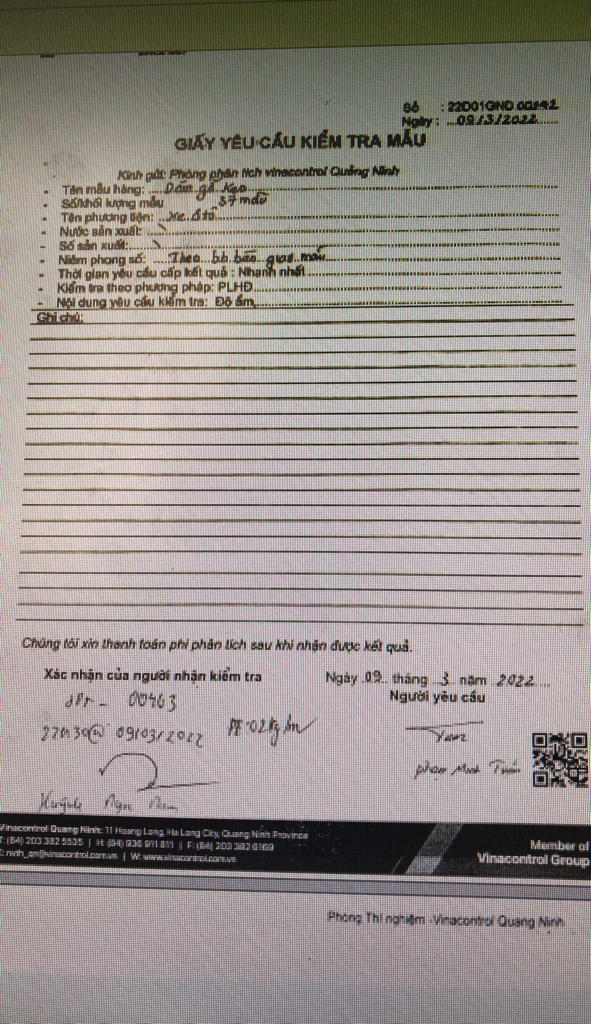 Số : 22D01GND 00142
Ngày : 09/3/2022
GIẤY YÊU CẦU KIỂM TRA MẪU
Kính gửi: Phòng phân tích vinacontrol Quảng Ninh
- Tên mẫu hàng: Dăm gỗ Keo
- Số/khối lượng mẫu 37 mẫu
- Tên phương tiện: Xe ô tô
- Nước sản xuất: \
- Số sản xuất: \
- Niêm phong số: Theo bb bàn giao mẫu
- Thời gian yêu cầu cấp kết quả : Nhanh nhất
- Kiểm tra theo phương pháp: PLHĐ
- Nội dung yêu cầu kiểm tra: Độ ẩm
Ghi chú:
Chúng tôi xin thanh toán phí phân tích sau khi nhận được kết quả.
Xác nhận của người nhận kiểm tra
Ngày 09 tháng 3 năm 2022
Người yêu cầu
00463
22h30 09/03/2022 PE: 02kg/m
Phan Minh Tuấn
Huỳnh Ngọc Nam
Vinacontrol Quang Ninh: 11 Hoang Long, Ha Long City, Quang Ninh Province
T: (84) 203 382 5535 | H: (84) 936 911 811 | F: (84) 203 382 6169
| W: www.vinacontrol.com.vn
Member of
Vinacontrol Group
Phòng Thí nghiệm -Vinacontrol Quang Ninh